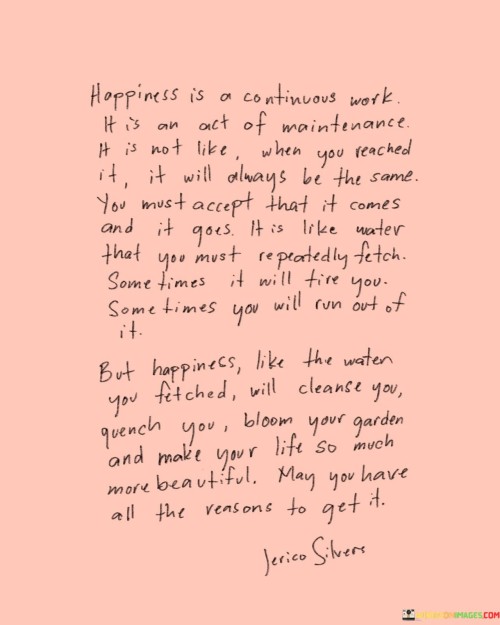 Happiness is a continuous work.
It is an act of maintenance.
It is not like, when you reached
it, it will always be the same.
You must accept that it comes
and it goes. It is like water
that you must repeatedly fetch.
Sometimes it will tire you.
Sometimes you will run out of
it.
But happiness, like the water
you fetched, will cleanse you,
quench you, bloom your garden
and make your life so much
more beautiful. May you have
all the reasons to get it.
Jerico Silvers
IMAGES.COM